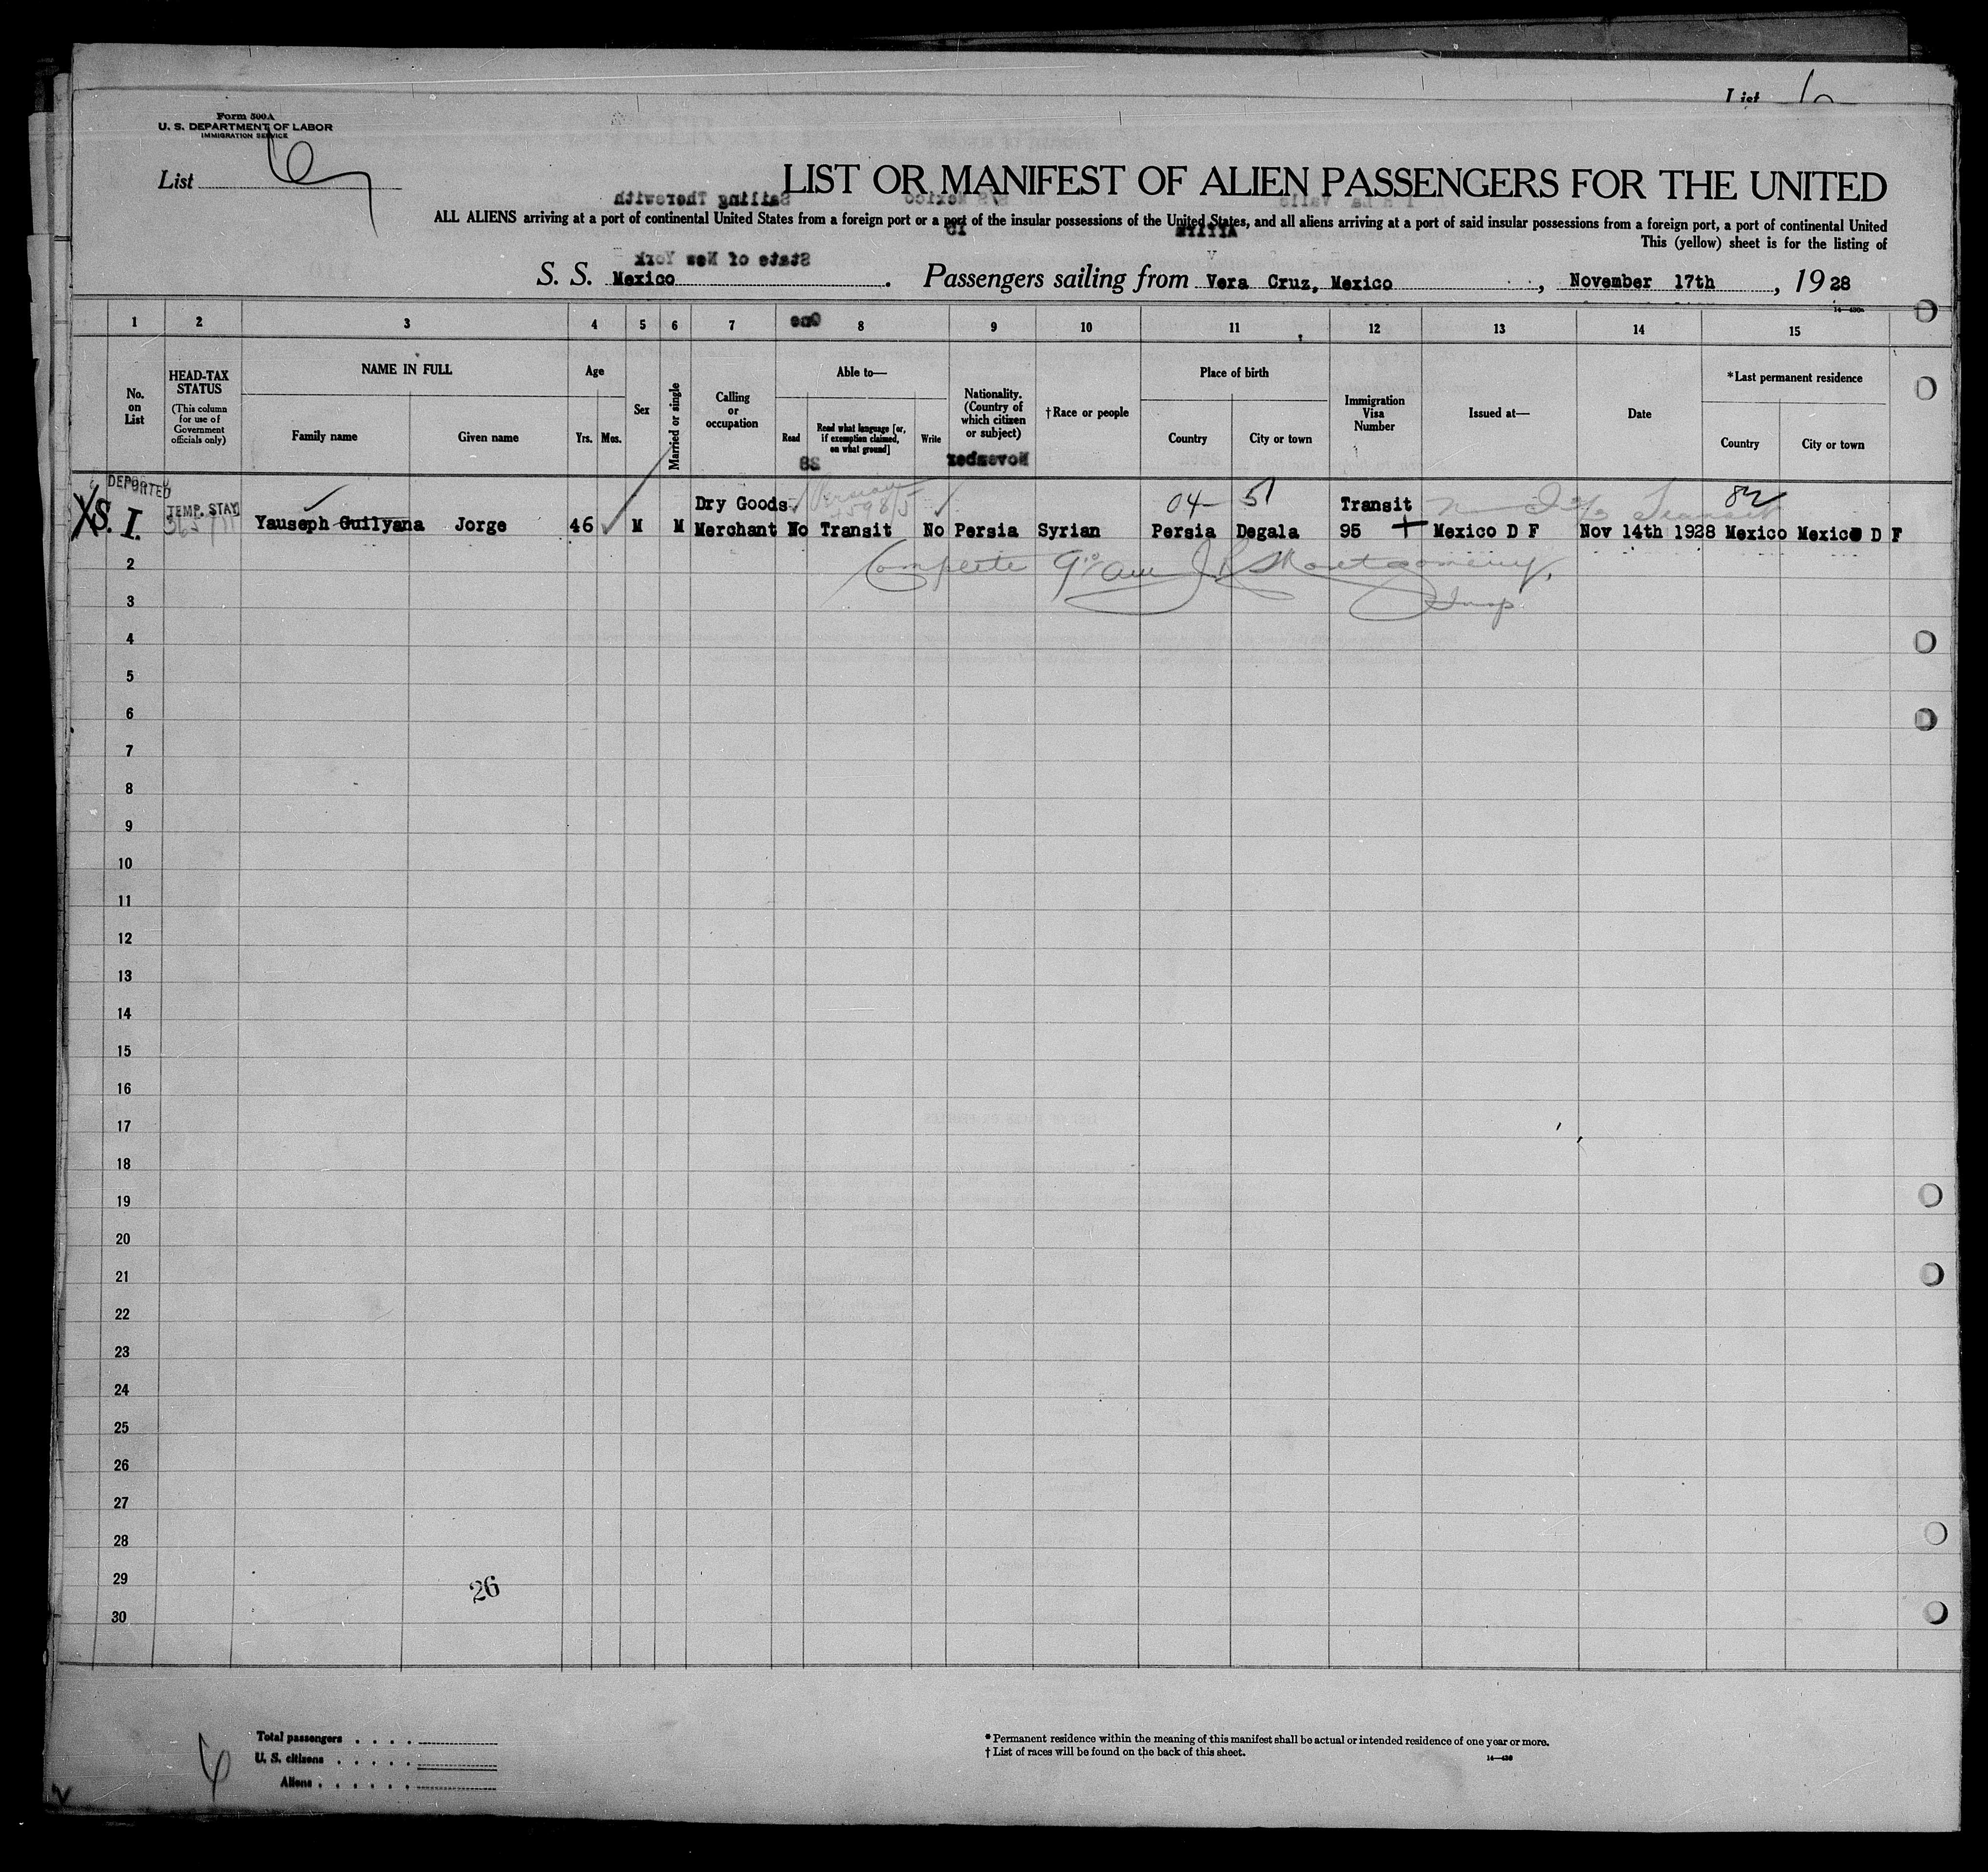 List
Form 500A
U. S. DEPARTMENT OF LABOR
IMMIGRATION SERVICE
List
LIST OR MANIFEST OF ALIEN PASSENGERS FOR THE UNITED
ALL ALIENS arriving at a port of continental United States from a foreign port or a port of the insular possessions of the United States, and all aliens arriving at a port of said insular possessions from a foreign port, a port of continental United
This (yellow) sheet is for the listing of
S. S. Mexico. Passengers sailing from Vera Cruz, Mexico, November 17th, 1928
1 2 3 4 5 6 7 8 9 10 11 12 13 14 15
No. on List
HEAD-TAX STATUS
(This column for use of Government officials only)
NAME IN FULL
Family name
Given name
Age
Yrs. Mos.
Sex
Married or single
Calling or occupation
Able to—
Read
Read what language [or, if exemption claimed, on what ground]
Write
Nationality. (Country of which citizen or subject)
†Race or people
Place of birth
Country
City or town
Immigration Visa Number
Issued at—
Date
*Last permanent residence
Country
City or town
DEPORTED
TEMP. STAY
X S. I.
Dry Goods 04- 51 Transit 82
Yauseph Guilyana Jorge 46 M M Merchant No Transit No Persia Syrian Persia Degala 95 Mexico D F Nov 14th 1928 Mexico Mexico D F
Complete J. R. Montgomery,
Insp.
2
3
4
5
6
7
8
9
10
11
12
13
14
15
16
17
18
19
20
21
22
23
24
25
26
27
28
29
26
30
Total passengers . . . .
U. S. citizens . . . . .
Aliens . . . . . .
* Permanent residence within the meaning of this manifest shall be actual or intended residence of one year or more.
† List of races will be found on the back of this sheet.
14—430